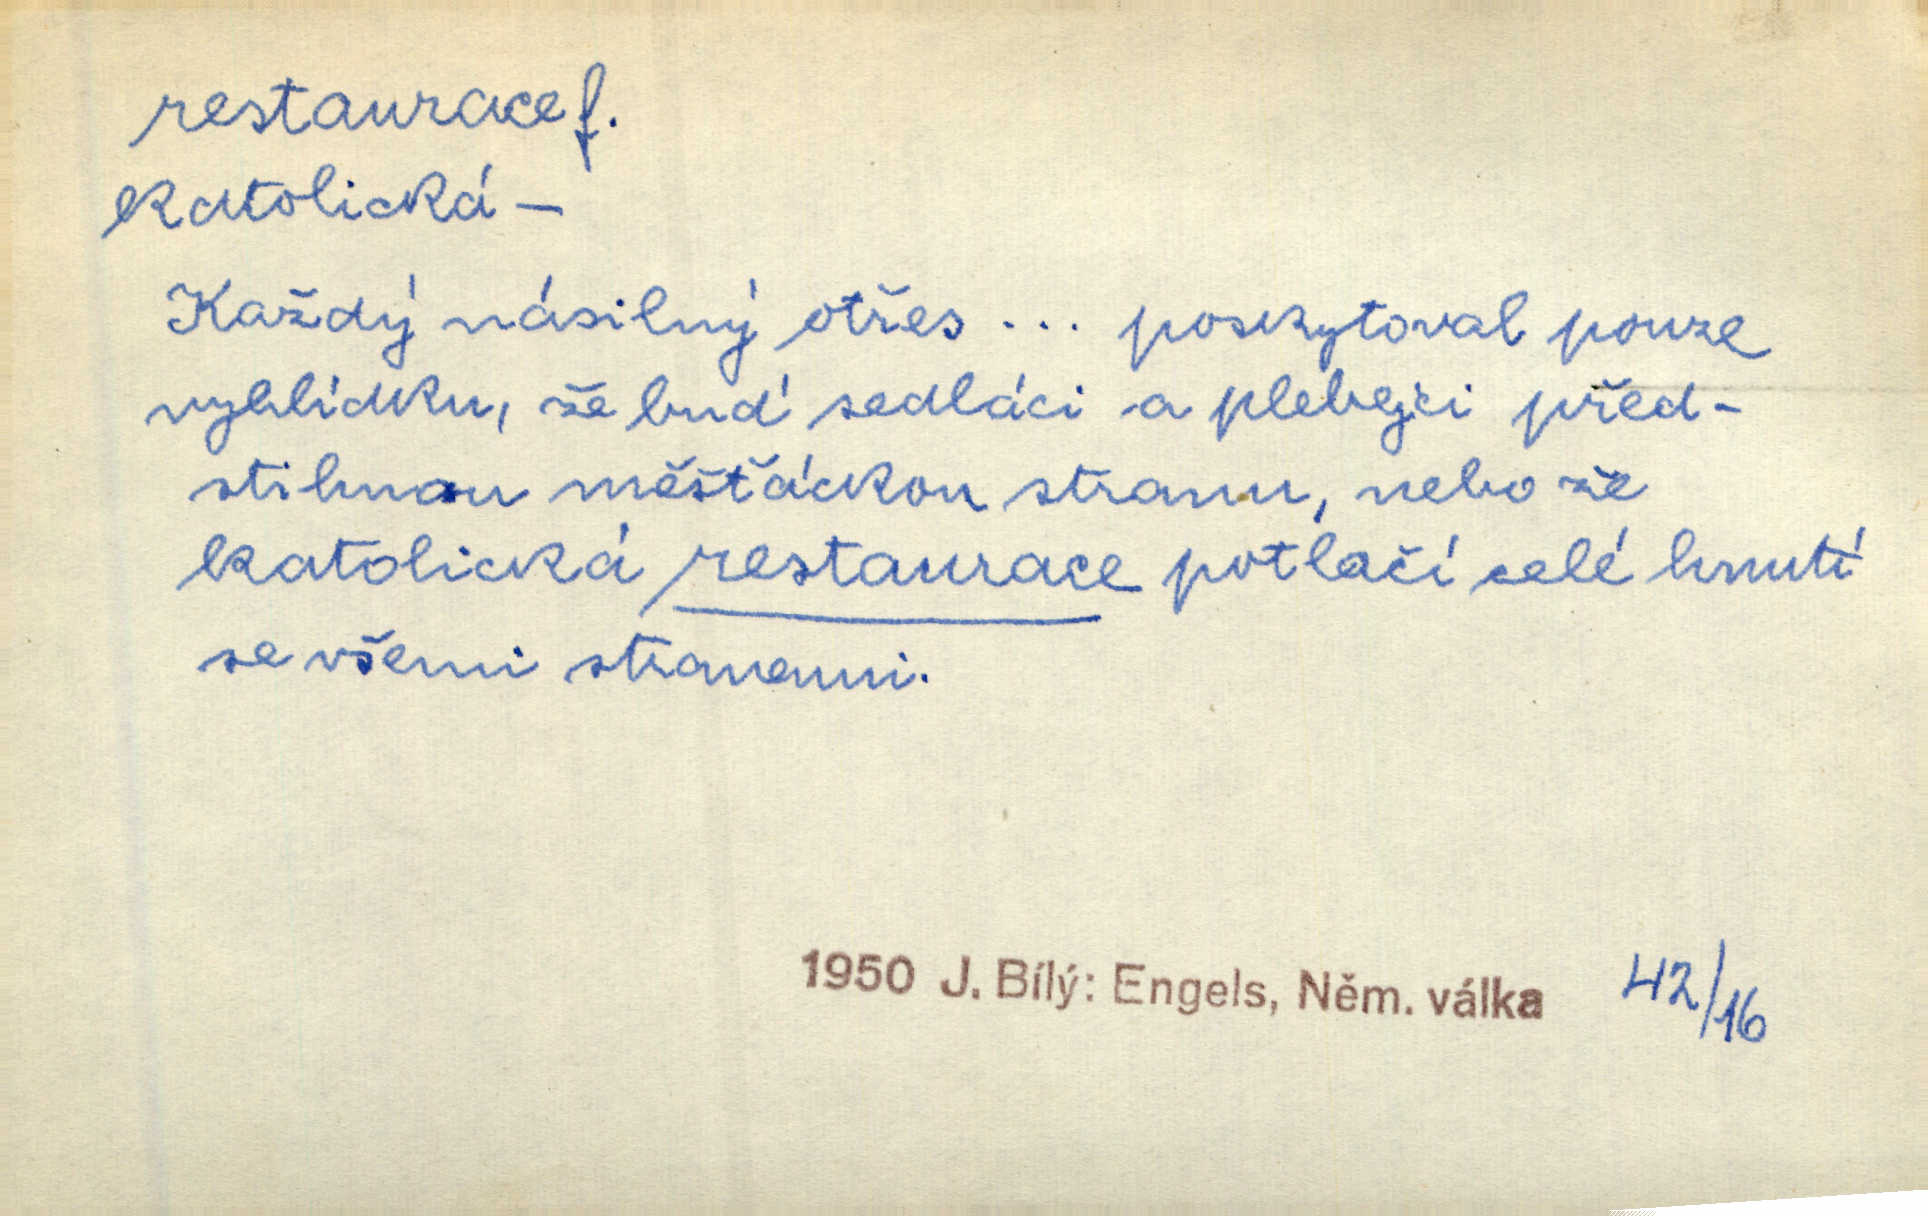 restaurace f.
katolická –
Každý násilný otřes ... poskytoval pouze
vyhlídku, že buď sedláci a plebejci před-
stihnou měšťáckou stranu, nebo že
katolická restaurace potlačí celé hnutí
se všemi stranami.
1950 J. Bílý: Engels, Něm. válka 42/16